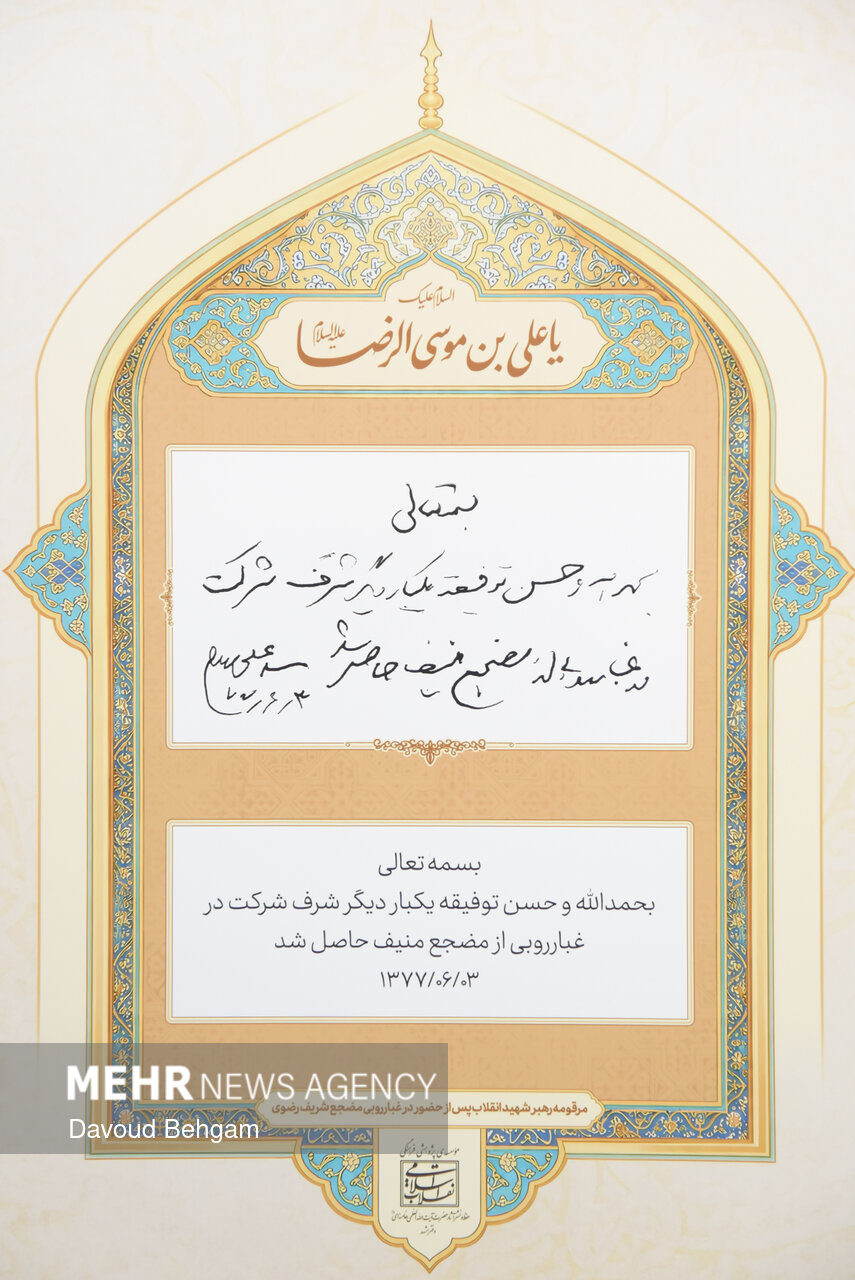 السلام علیک
یا علی بن موسی الرضا علیه السلام
بسمه تعالی
بحمدالله و حسن توفیقه یکبار دیگر شرف شرکت
در غبارروبی از مضجع منیف حاصل شد سید علی خامنه‌ای
۷۷٫۶٫۳
بسمه تعالی
بحمدالله و حسن توفیقه یکبار دیگر شرف شرکت در
غبارروبی از مضجع منیف حاصل شد
۱۳۷۷/۰۶/۰۳
MEHR NEWS AGENCY
Davoud Behgam
مرقومه رهبر شهید انقلاب پس از حضور در غبارروبی مضجع شریف رضوی
مؤسسه‌ی پژوهشی فرهنگی
انقلاب اسلامی
حفظ و نشر آثار حضرت آیت‌الله العظمی خامنه‌ای
دفتر مشهد